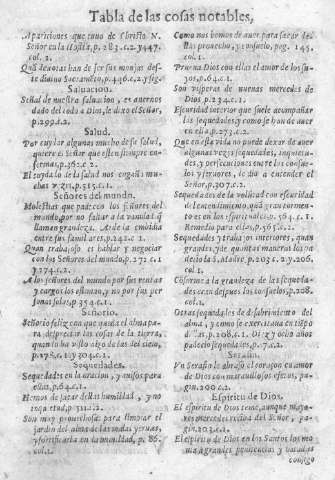 Tabla de las cosas notables,
Apariciones que tuuo de Christo N.
Señor en la Hostia, p. 283. c. 2. y 447.
col. 2.
Qua deuotas han de ser sus monjas deste
diuino Sacramẽto, p. 446. c. 2. y sig.
Saluacion.
Señal de nuestra saluacion, es auernos
dado del todo a Dios, le dixo el Señor,
p. 299. c. 2.
Salud.
Por cuydar algunas mucho de su salud,
quiere el Señor que esten siempre enfermas,
p. 562. c. 2.
El cuydado de la salud nos engaña muchas
vezes, p. 515. c. 1.
Señores del mundo.
Molestias que padecen los señores del
mundo, por no faltar a la vanidad q̃
llaman grandeza. Arde la embidia
entre sus familiares, p. 242. c. 2.
Quan trabajoso es hablar y negociar
con los Señores del mundo, p. 272. c. 1
y 274. c. 2.
A los señores del mundo por sus rentas
y cargos los estiman, y no por sus personas
solas, p. 354. c. 1.
Señorio.
Señorio feliz con que queda el alma para
despreciar las cosas de la tierra,
quando ha visto algo de las del cielo,
p. 178. c. 1. y 304. c. 1.
Sequedades.
Sequedades en la oracion, y auisos para
ellas, p. 64. c. 1.
Hemos de sacar dellas humildad, y no
inquietud, p. 311. c. 2.
Son muy prouechosas para limpiar el
jardin del alma de las malas yeruas,
y fortificarla en la humildad, p. 86.
col. 1.
Como nos hemos de auer para sacar dellas
prouecho, y consuelo, pag. 145.
col. 1.
Prueua Dios con ellas el amor de los suyos,
p. 64. c. 1.
Son visperas de nueuas mercedes de
Dios, p. 234. c. 1.
Escuridad interior que suele acompañar
las sequedades, y como se han de auer
en ella, p. 273. c. 1.
Que en esta vida no puede dexar de auer
algunas vezes sequedades, inquietudes,
y persecuciones en ete los consuelos
y fauores, le dio a entender el
Señor, p. 307. c. 2.
Sequedades de la voluntad con escuridad
del entendimiento, quã grãdes tormentos
en los espirituales, p. 564. c. 1.
Remedio para ellas, p. 565. c. 2.
Sequedades y trabajos interiores, quan
grandes, y de quantas maneras los padecio
la S. Madre, p. 203. c. 2. y 206.
col. 1.
Conforme a la grandeza de las sequedades
eran despues los consuelos, p. 208.
col. 1.
Otras sequedades de desabrimiento del
alma, y como se exercitaua en tiempo
dellas, p. 208. c. 1. Diez y ocho años
padecio sequedades, p. 7. c. 2.
Serafin.
Vn Serafin le abraso el coraçon en amor de
Dios con marauillosos efetos, pagin.
200. c. 2.
Espiritu de Dios.
El espiritu de Dios teme, aunque mayores
mercedes reciba del Señor, pagin.
203. c. 1.
El espiritu de Dios en los Santos los mouia
a grandes penitencias y baxadas
consigo